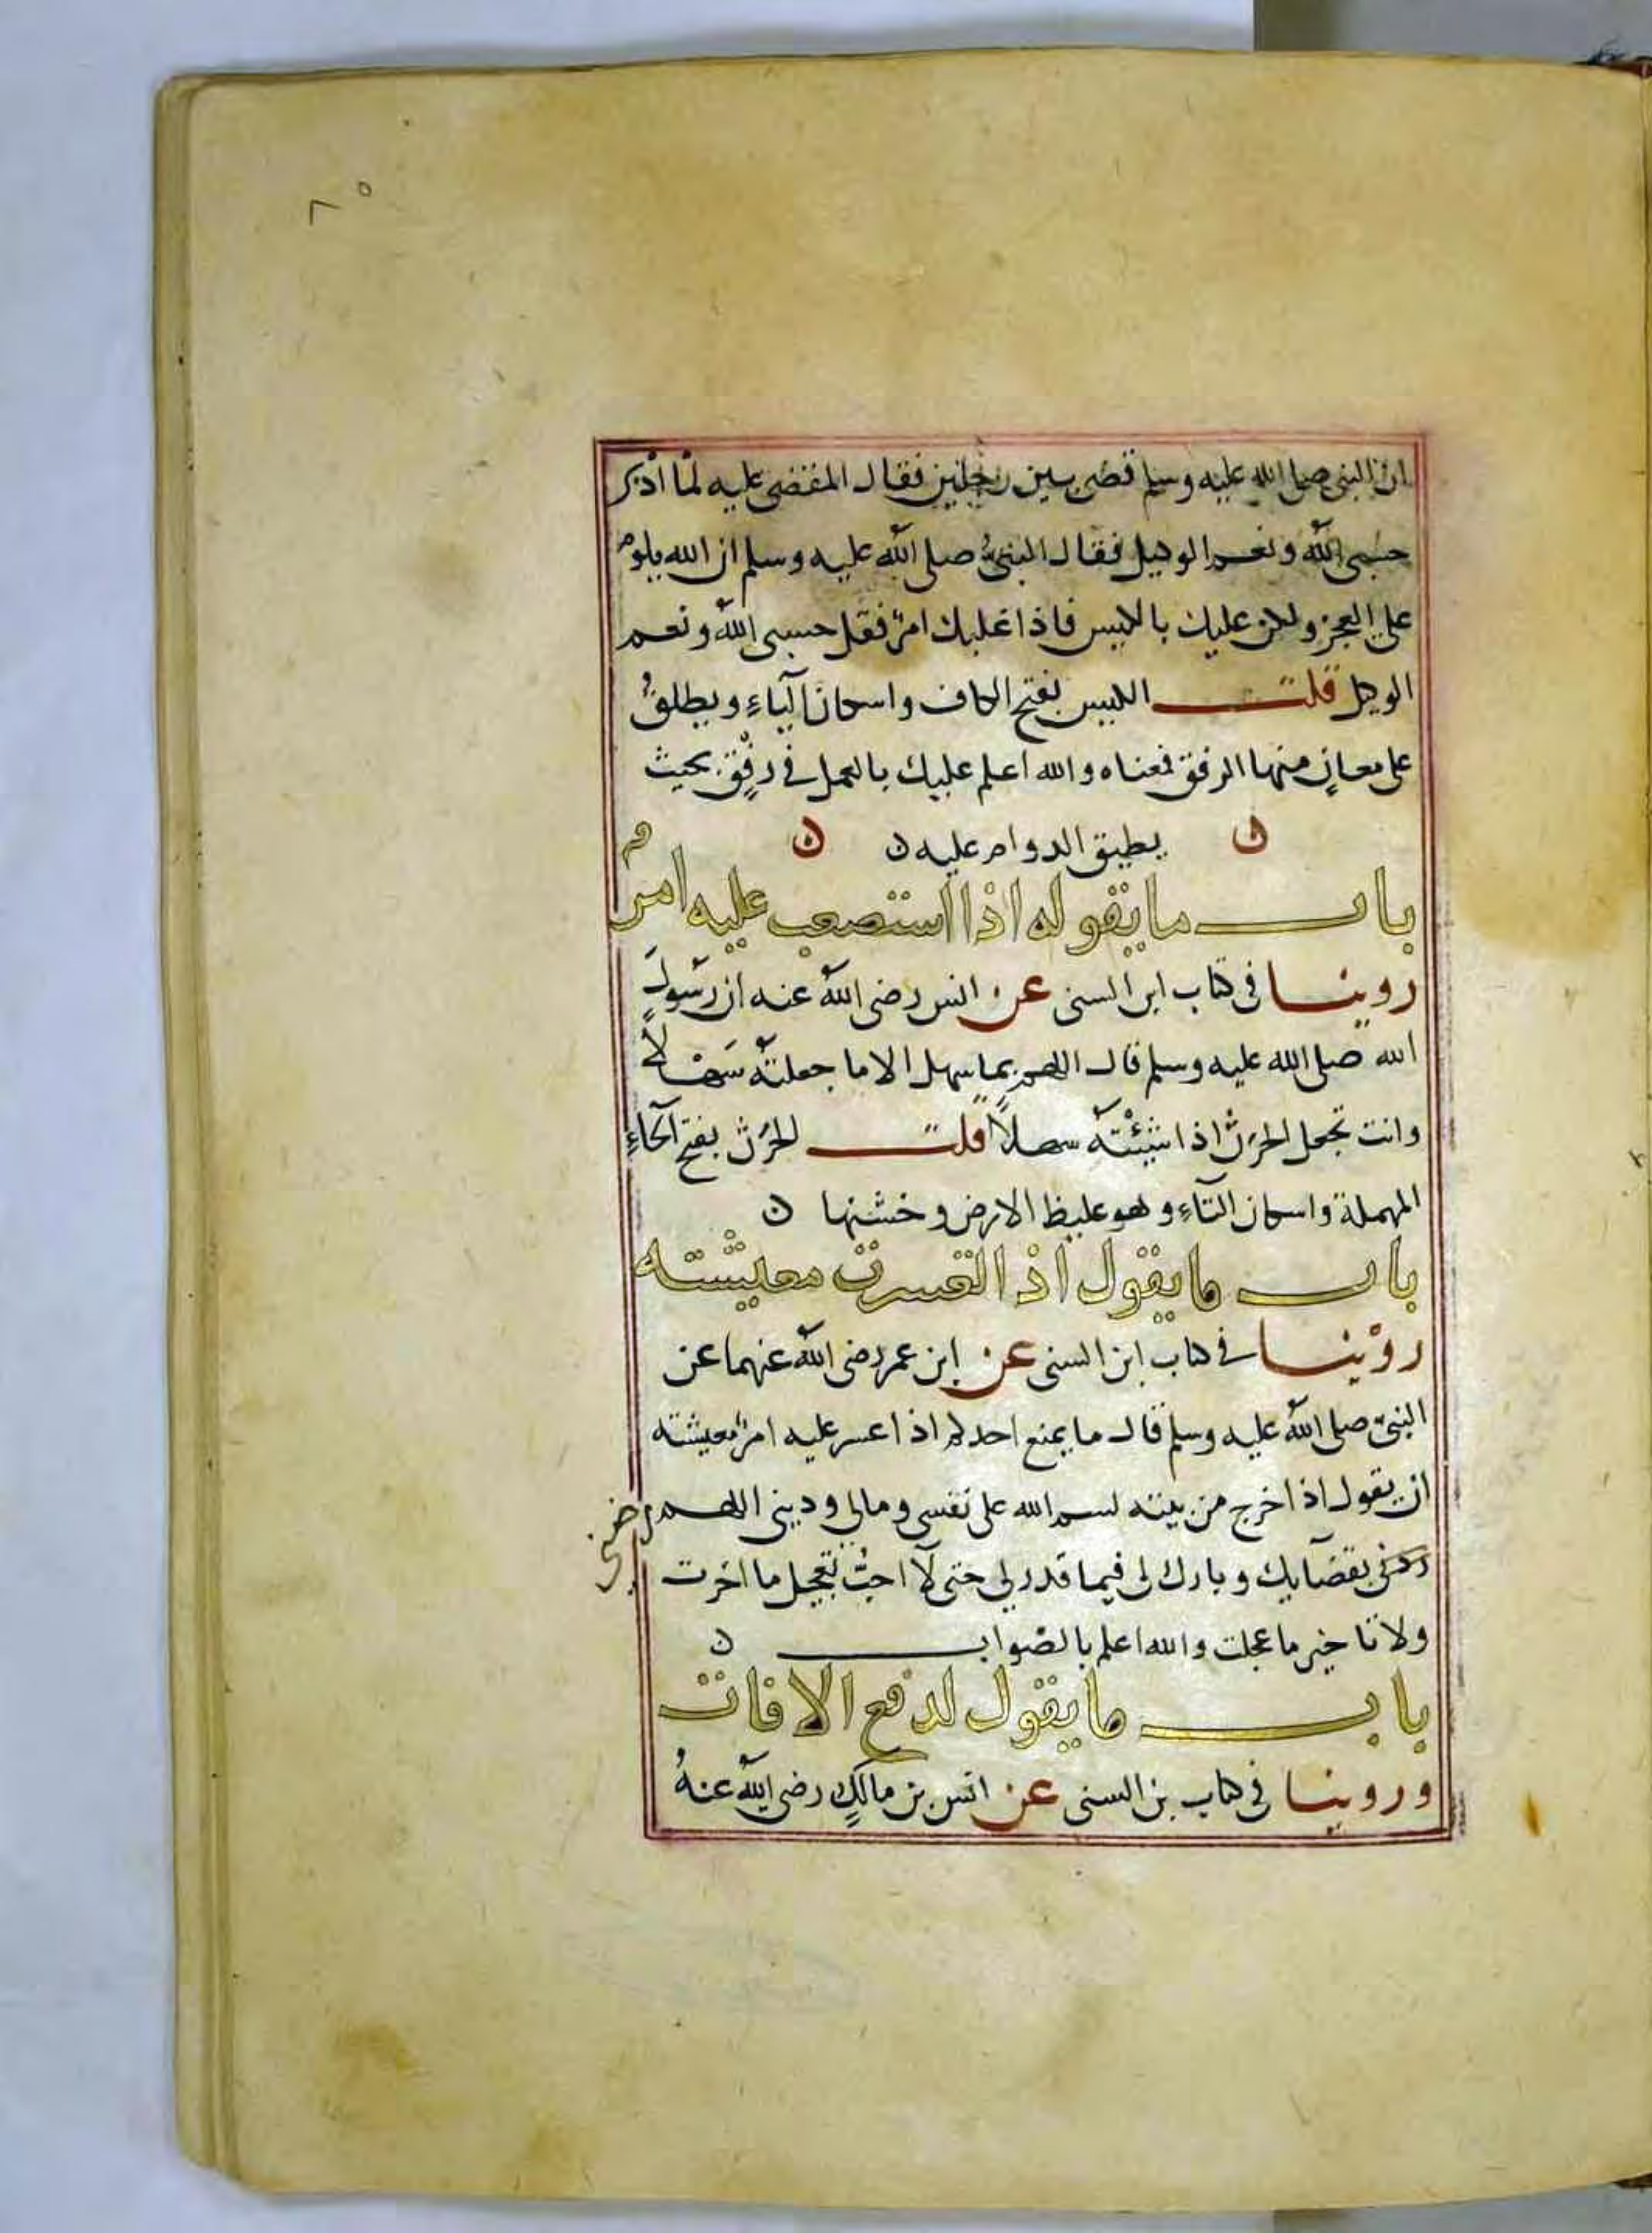 ٨٥
ان النبي صلى الله عليه وسلم قضى بين رجلين فقال المقضي عليه لما ادبر
حسبي الله ونعم الوكيل فقال النبي صلى الله عليه وسلم ان الله يلوم
على العجز ولكن عليك بالكيس فاذا غلبك امر فقل حسبي الله ونعم
الوكيل قلت الكيس بفتح الكاف واسكان الياء ويطلق
على معان منها الرفق فمعناه والله اعلم عليك بالعمل في رفق بحيث
يطيق الدوام عليه ن
باب ما يقوله اذا استصعب عليه امر
روينا في كتاب ابن السني عن انس رضي الله عنه ان رسول
الله صلى الله عليه وسلم قال اللهم لا سهل الا ما جعلته سهلا
وانت تجعل الحزن اذا شئته سهلا قلت الحزن بفتح الحاء
المهملة واسكان التاء وهو غليظ الارض وخشنها ن
باب ما يقول اذا تعسرت معيشته
روينا في كتاب ابن السني عن ابن عمر رضي الله عنهما عن
النبي صلى الله عليه وسلم قال ما يمنع احدكم اذا عسر عليه امر معيشته
ان يقول اذا خرج من بيته بسم الله على نفسي ومالي وديني اللهم رضني
بقضايك وبارك لي فيما قدر لي حتى لا احب تعجيل ما اخرت
ولا تاخير ما عجلت والله اعلم بالصواب ن
باب ما يقول لدفع الافات
وروينا في كتاب بن السني عن انس بن مالك رضي الله عنه